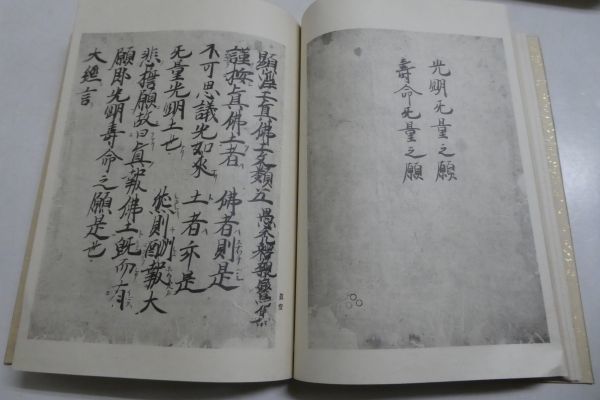 光明无量之願
壽命无量之願
顯淨土眞佛土文類五 愚禿釋親鸞集
謹按眞佛土者 佛者則是
不可思議光如來 土者亦是
无量光明土也 然則酬報大
悲誓願故曰眞報佛土既而有
願即光明壽命之願是也
大經言